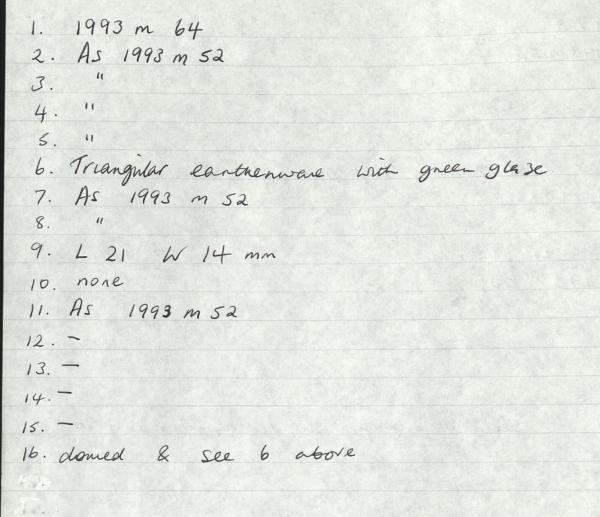 1. 1993 m 64
2. As 1993 m 52
3. "
4. "
5. "
6. Triangular earthenware with green glaze
7. As 1993 m 52
8. "
9. L 21 W 14 mm
10. none
11. As 1993 m 52
12. -
13. -
14. -
15. -
16. domed & see 6 above